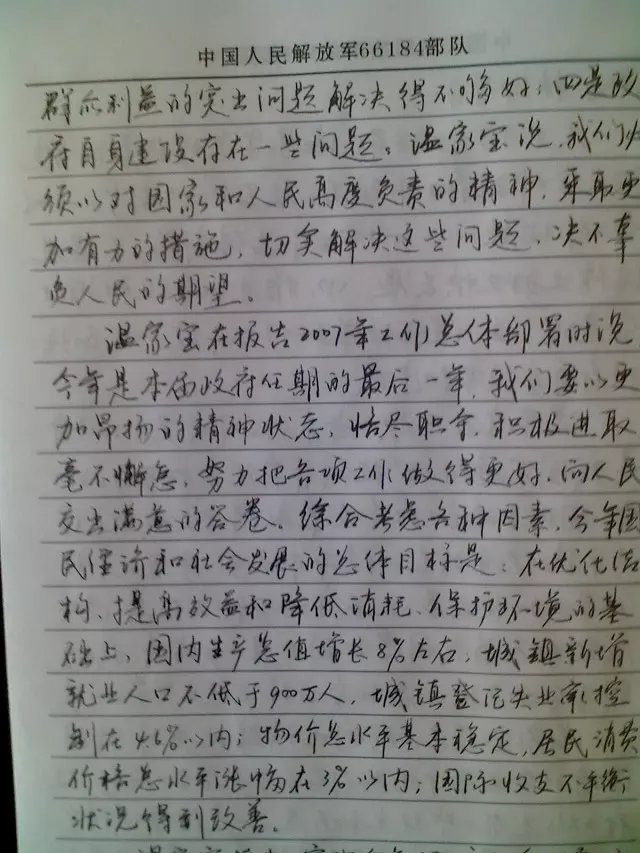 中国人民解放军66184部队
群众利益的突出问题解决得不够好；四是政
府自身建设存在一些问题。温家宝说，我们必
须以对国家和人民高度负责的精神，采取更
加有力的措施，切实解决这些问题，决不辜
负人民的期望。
温家宝在报告2007年工作总体部署时说
今年是本届政府任期的最后一年，我们要以更
加昂扬的精神状态，恪尽职守，积极进取
毫不懈怠，努力把各项工作做得更好，向人民
交出满意的答卷。综合考虑各种因素，今年国
民经济和社会发展的总体目标是：在优化结
构、提高效益和降低消耗、保护环境的基
础上，国内生产总值增长8%左右，城镇新增
就业人口不低于900万人，城镇登记失业率控
制在4.6%以内；物价总水平基本稳定，居民消费
价格总水平涨幅在3%以内；国际收支不平衡
状况得到改善。